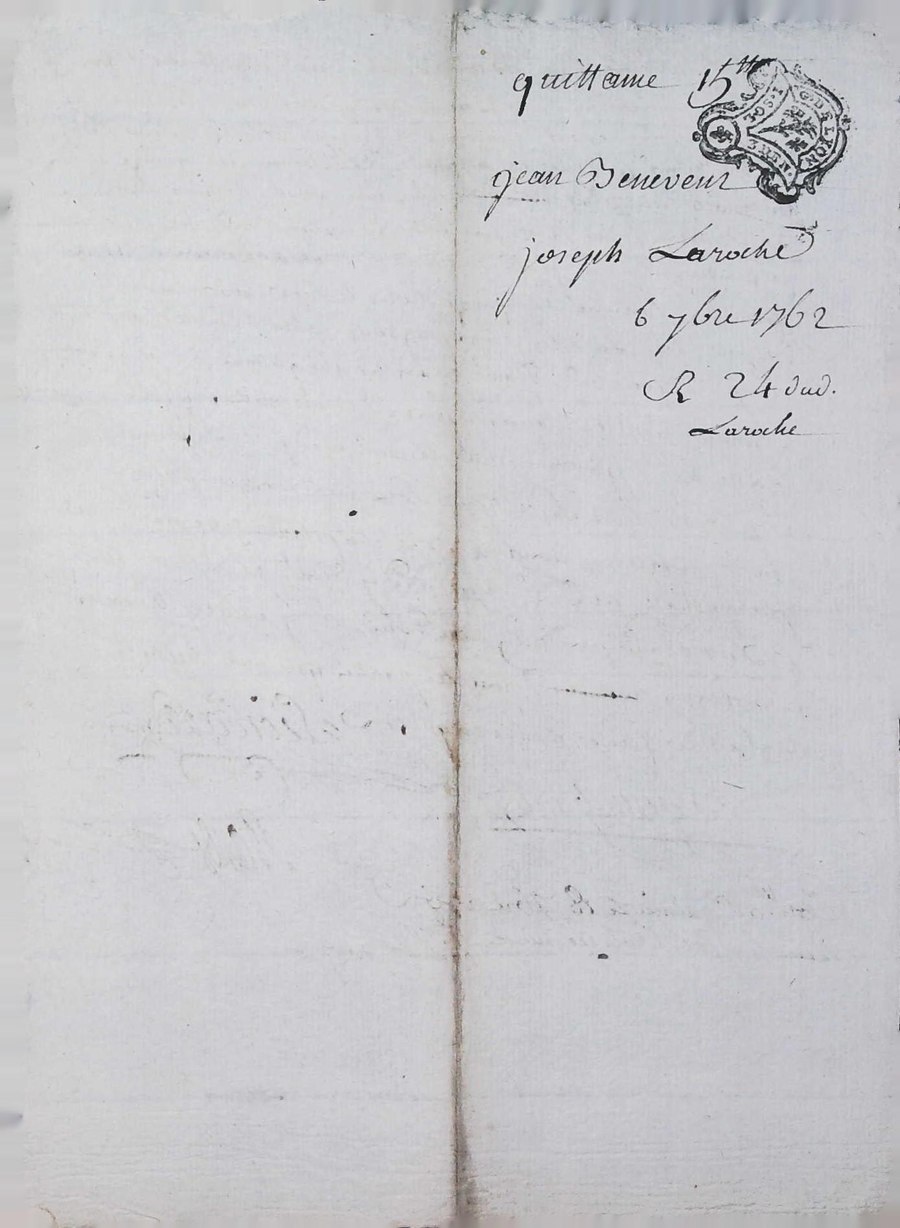 quittance 15tt
G. DE LYON
jean Benevent
joseph Laroche
6 7bre 1762
R 24 dud.
Laroche